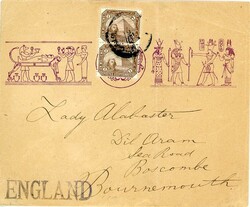 Lady Alabaster
Dil Aram
Sea Road
Boscombe
ENGLAND
Bournemouth